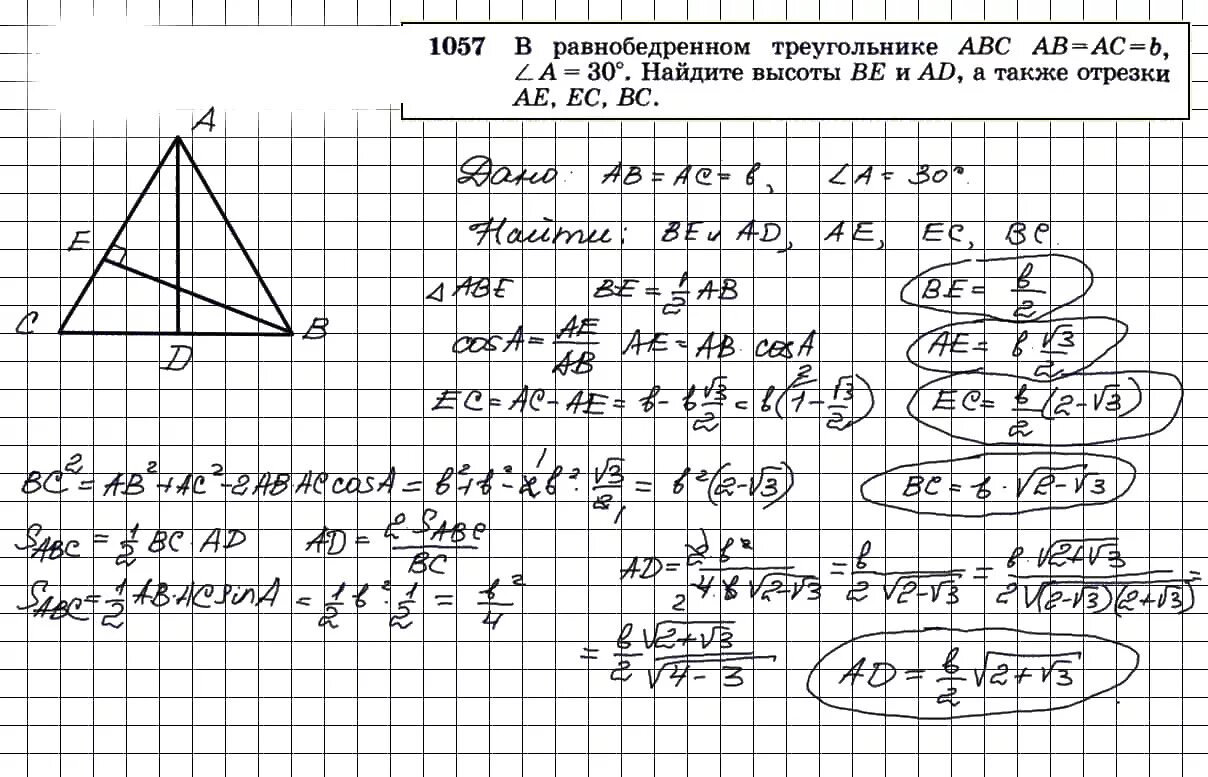 1057 В равнобедренном треугольнике ABC AB=AC=b,
∠A = 30°. Найдите высоты BE и AD, а также отрезки
AE, EC, BC.
A
E
C
B
D
Дано: AB = AC = b, ∠A = 30°.
Найти: BE и AD, AE, EC, BC.
△ABE BE = 1/2 AB BE = b/2
cosA = AE/AB AE = AB · cosA AE = b · √3/2
EC = AC - AE = b - b √3/2 = b(1 - √3/2) EC = b/2 (2-√3)
BC² = AB² + AC² - 2AB·AC cosA = b² + b² - 2b² · √3/2 = b²(2-√3) BC = b · √(2-√3)
S_ABC = 1/2 BC · AD AD = 2S_ABC/BC
S_ABC = 1/2 AB · AC sinA = 1/2 b² · 1/2 = b²/4
AD = 2·b²/(4·b √(2-√3)) = b/(2√(2-√3)) = b·√(2+√3)/(2√((2-√3)(2+√3))) =
= b√(2+√3)/(2√(4-3)) AD = b/2 √(2+√3)